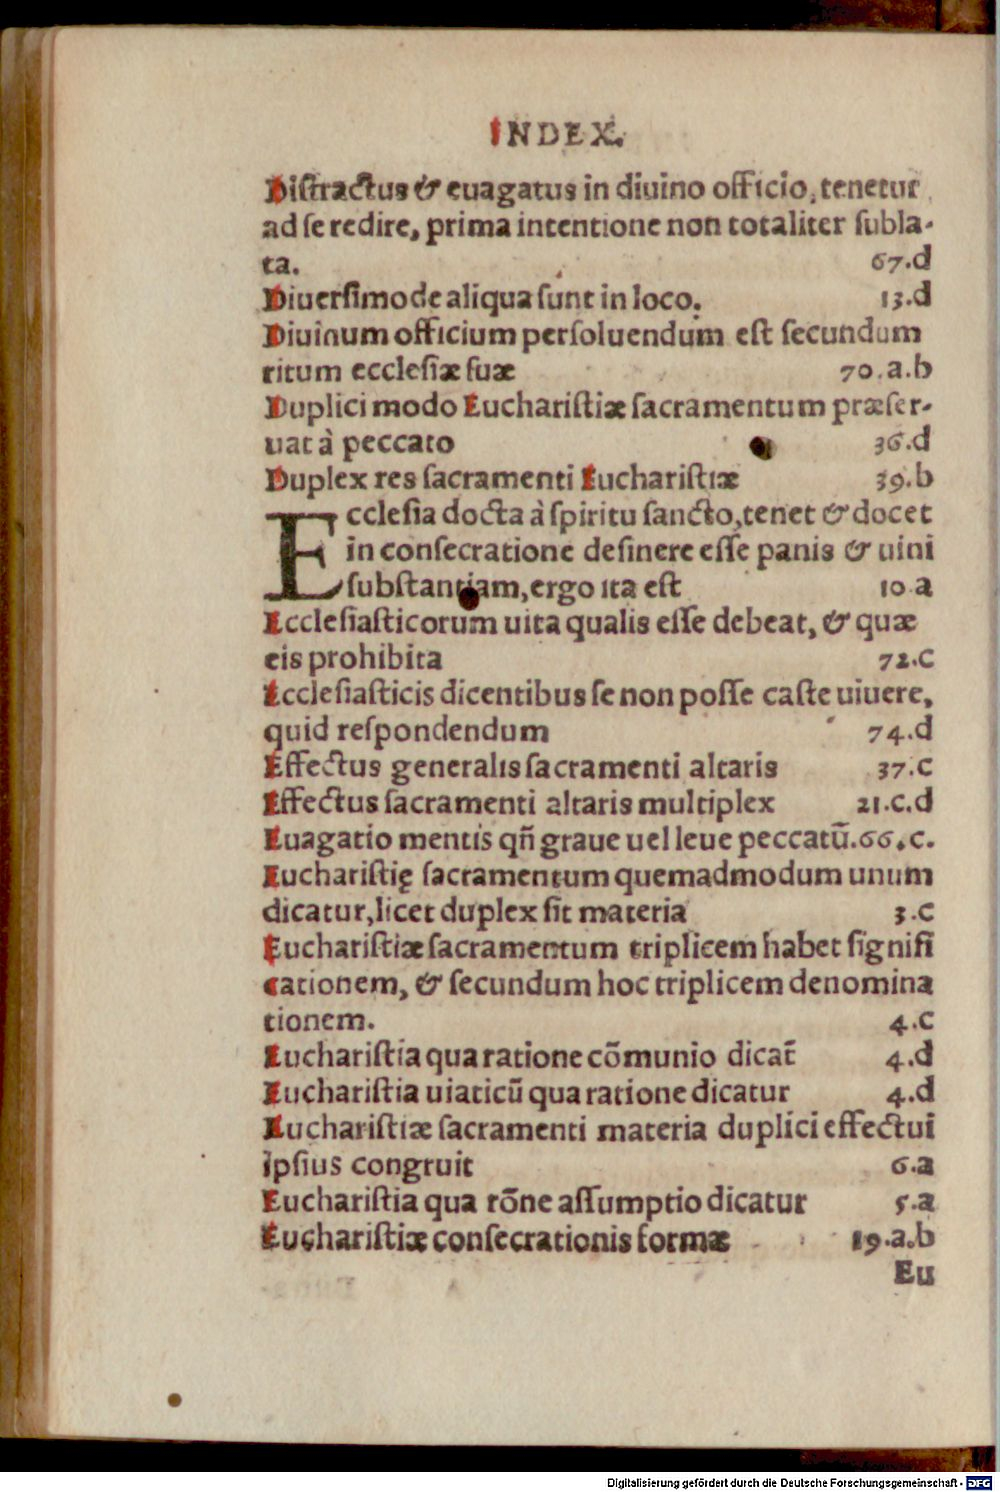 INDEX.
Distractus & euagatus in diuino officio, tenetur
ad se redire, prima intentione non totaliter subla-
ta. 67.d
Diuersimode aliqua sunt in loco. 13.d
Diuinum officium persoluendum est secundum
ritum ecclesiæ suæ 70.a.b
Duplici modo Eucharistiæ sacramentum præser-
uat à peccato 36.d
Duplex res sacramenti Eucharistiæ 39.b
Ecclesia docta à spiritu sancto, tenet & docet
in consecratione desinere esse panis & uini
substantiam, ergo ita est 10.a
Ecclesiasticorum uita qualis esse debeat, & quæ
eis prohibita 72.c
Ecclesiasticis dicentibus se non posse caste uiuere,
quid respondendum 74.d
Effectus generalis sacramenti altaris 37.c
Effectus sacramenti altaris multiplex 21.c.d
Euagatio mentis qñ graue uel leue peccatũ. 66.c.
Eucharistię sacramentum quemadmodum unum
dicatur, licet duplex sit materia 3.c
Eucharistiæ sacramentum triplicem habet signifi
cationem, & secundum hoc triplicem denomina
tionem. 4.c
Eucharistia qua ratione cõmunio dicat̃ 4.d
Eucharistia uiaticũ qua ratione dicatur 4.d
Eucharistiæ sacramenti materia duplici effectui
ipsius congruit 6.a
Eucharistia qua rõne assumptio dicatur 5.a
Eucharistiæ consecrationis formæ 19.a.b
Eu
Digitalisierung gefördert durch die Deutsche Forschungsgemeinschaft - DFG